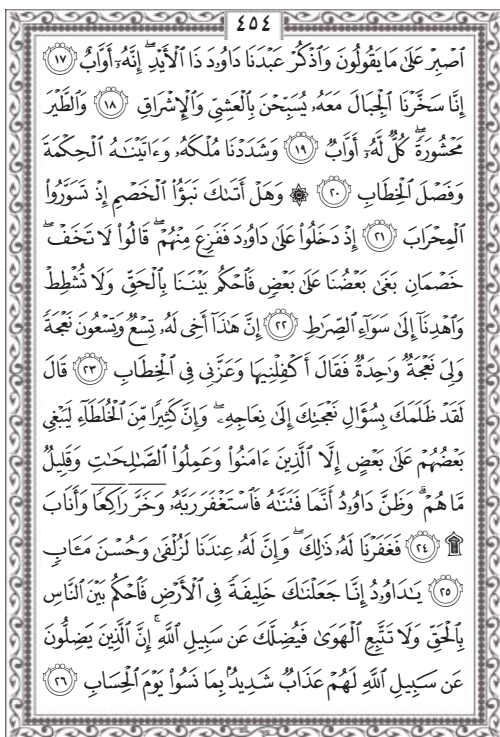 ٤٥٤
ٱصۡبِرۡ عَلَىٰ مَا يَقُولُونَ وَٱذۡكُرۡ عَبۡدَنَا دَاوُۥدَ ذَا ٱلۡأَيۡدِۖ إِنَّهُۥٓ أَوَّابٌ ١٧
إِنَّا سَخَّرۡنَا ٱلۡجِبَالَ مَعَهُۥ يُسَبِّحۡنَ بِٱلۡعَشِيِّ وَٱلۡإِشۡرَاقِ ١٨ وَٱلطَّيۡرَ
مَحۡشُورَةٗۖ كُلّٞ لَّهُۥٓ أَوَّابٞ ١٩ وَشَدَدۡنَا مُلۡكَهُۥ وَءَاتَيۡنَٰهُ ٱلۡحِكۡمَةَ
وَفَصۡلَ ٱلۡخِطَابِ ٢٠ ۞ وَهَلۡ أَتَىٰكَ نَبَؤُاْ ٱلۡخَصۡمِ إِذۡ تَسَوَّرُواْ
ٱلۡمِحۡرَابَ ٢١ إِذۡ دَخَلُواْ عَلَىٰ دَاوُۥدَ فَفَزِعَ مِنۡهُمۡۖ قَالُواْ لَا تَخَفۡۖ
خَصۡمَانِ بَغَىٰ بَعۡضُنَا عَلَىٰ بَعۡضٖ فَٱحۡكُم بَيۡنَنَا بِٱلۡحَقِّ وَلَا تُشۡطِطۡ
وَٱهۡدِنَآ إِلَىٰ سَوَآءِ ٱلصِّرَٰطِ ٢٢ إِنَّ هَٰذَآ أَخِي لَهُۥ تِسۡعٞ وَتِسۡعُونَ نَعۡجَةٗ
وَلِيَ نَعۡجَةٞ وَٰحِدَةٞ فَقَالَ أَكۡفِلۡنِيهَا وَعَزَّنِي فِي ٱلۡخِطَابِ ٢٣ قَالَ
لَقَدۡ ظَلَمَكَ بِسُؤَالِ نَعۡجَتِكَ إِلَىٰ نِعَاجِهِۦۖ وَإِنَّ كَثِيرٗا مِّنَ ٱلۡخُلَطَآءِ لَيَبۡغِي
بَعۡضُهُمۡ عَلَىٰ بَعۡضٍ إِلَّا ٱلَّذِينَ ءَامَنُواْ وَعَمِلُواْ ٱلصَّٰلِحَٰتِ وَقَلِيلٞ
مَّا هُمۡۗ وَظَنَّ دَاوُۥدُ أَنَّمَا فَتَنَّٰهُ فَٱسۡتَغۡفَرَ رَبَّهُۥ وَخَرَّۤ رَاكِعٗاۤ وَأَنَابَ
۩ ٢٤ فَغَفَرۡنَا لَهُۥ ذَٰلِكَۖ وَإِنَّ لَهُۥ عِندَنَا لَزُلۡفَىٰ وَحُسۡنَ مَـَٔابٖ
٢٥ يَٰدَاوُۥدُ إِنَّا جَعَلۡنَٰكَ خَلِيفَةٗ فِي ٱلۡأَرۡضِ فَٱحۡكُم بَيۡنَ ٱلنَّاسِ
بِٱلۡحَقِّ وَلَا تَتَّبِعِ ٱلۡهَوَىٰ فَيُضِلَّكَ عَن سَبِيلِ ٱللَّهِۚ إِنَّ ٱلَّذِينَ يَضِلُّونَ
عَن سَبِيلِ ٱللَّهِ لَهُمۡ عَذَابٞ شَدِيدُۢ بِمَا نَسُواْ يَوۡمَ ٱلۡحِسَابِ ٢٦